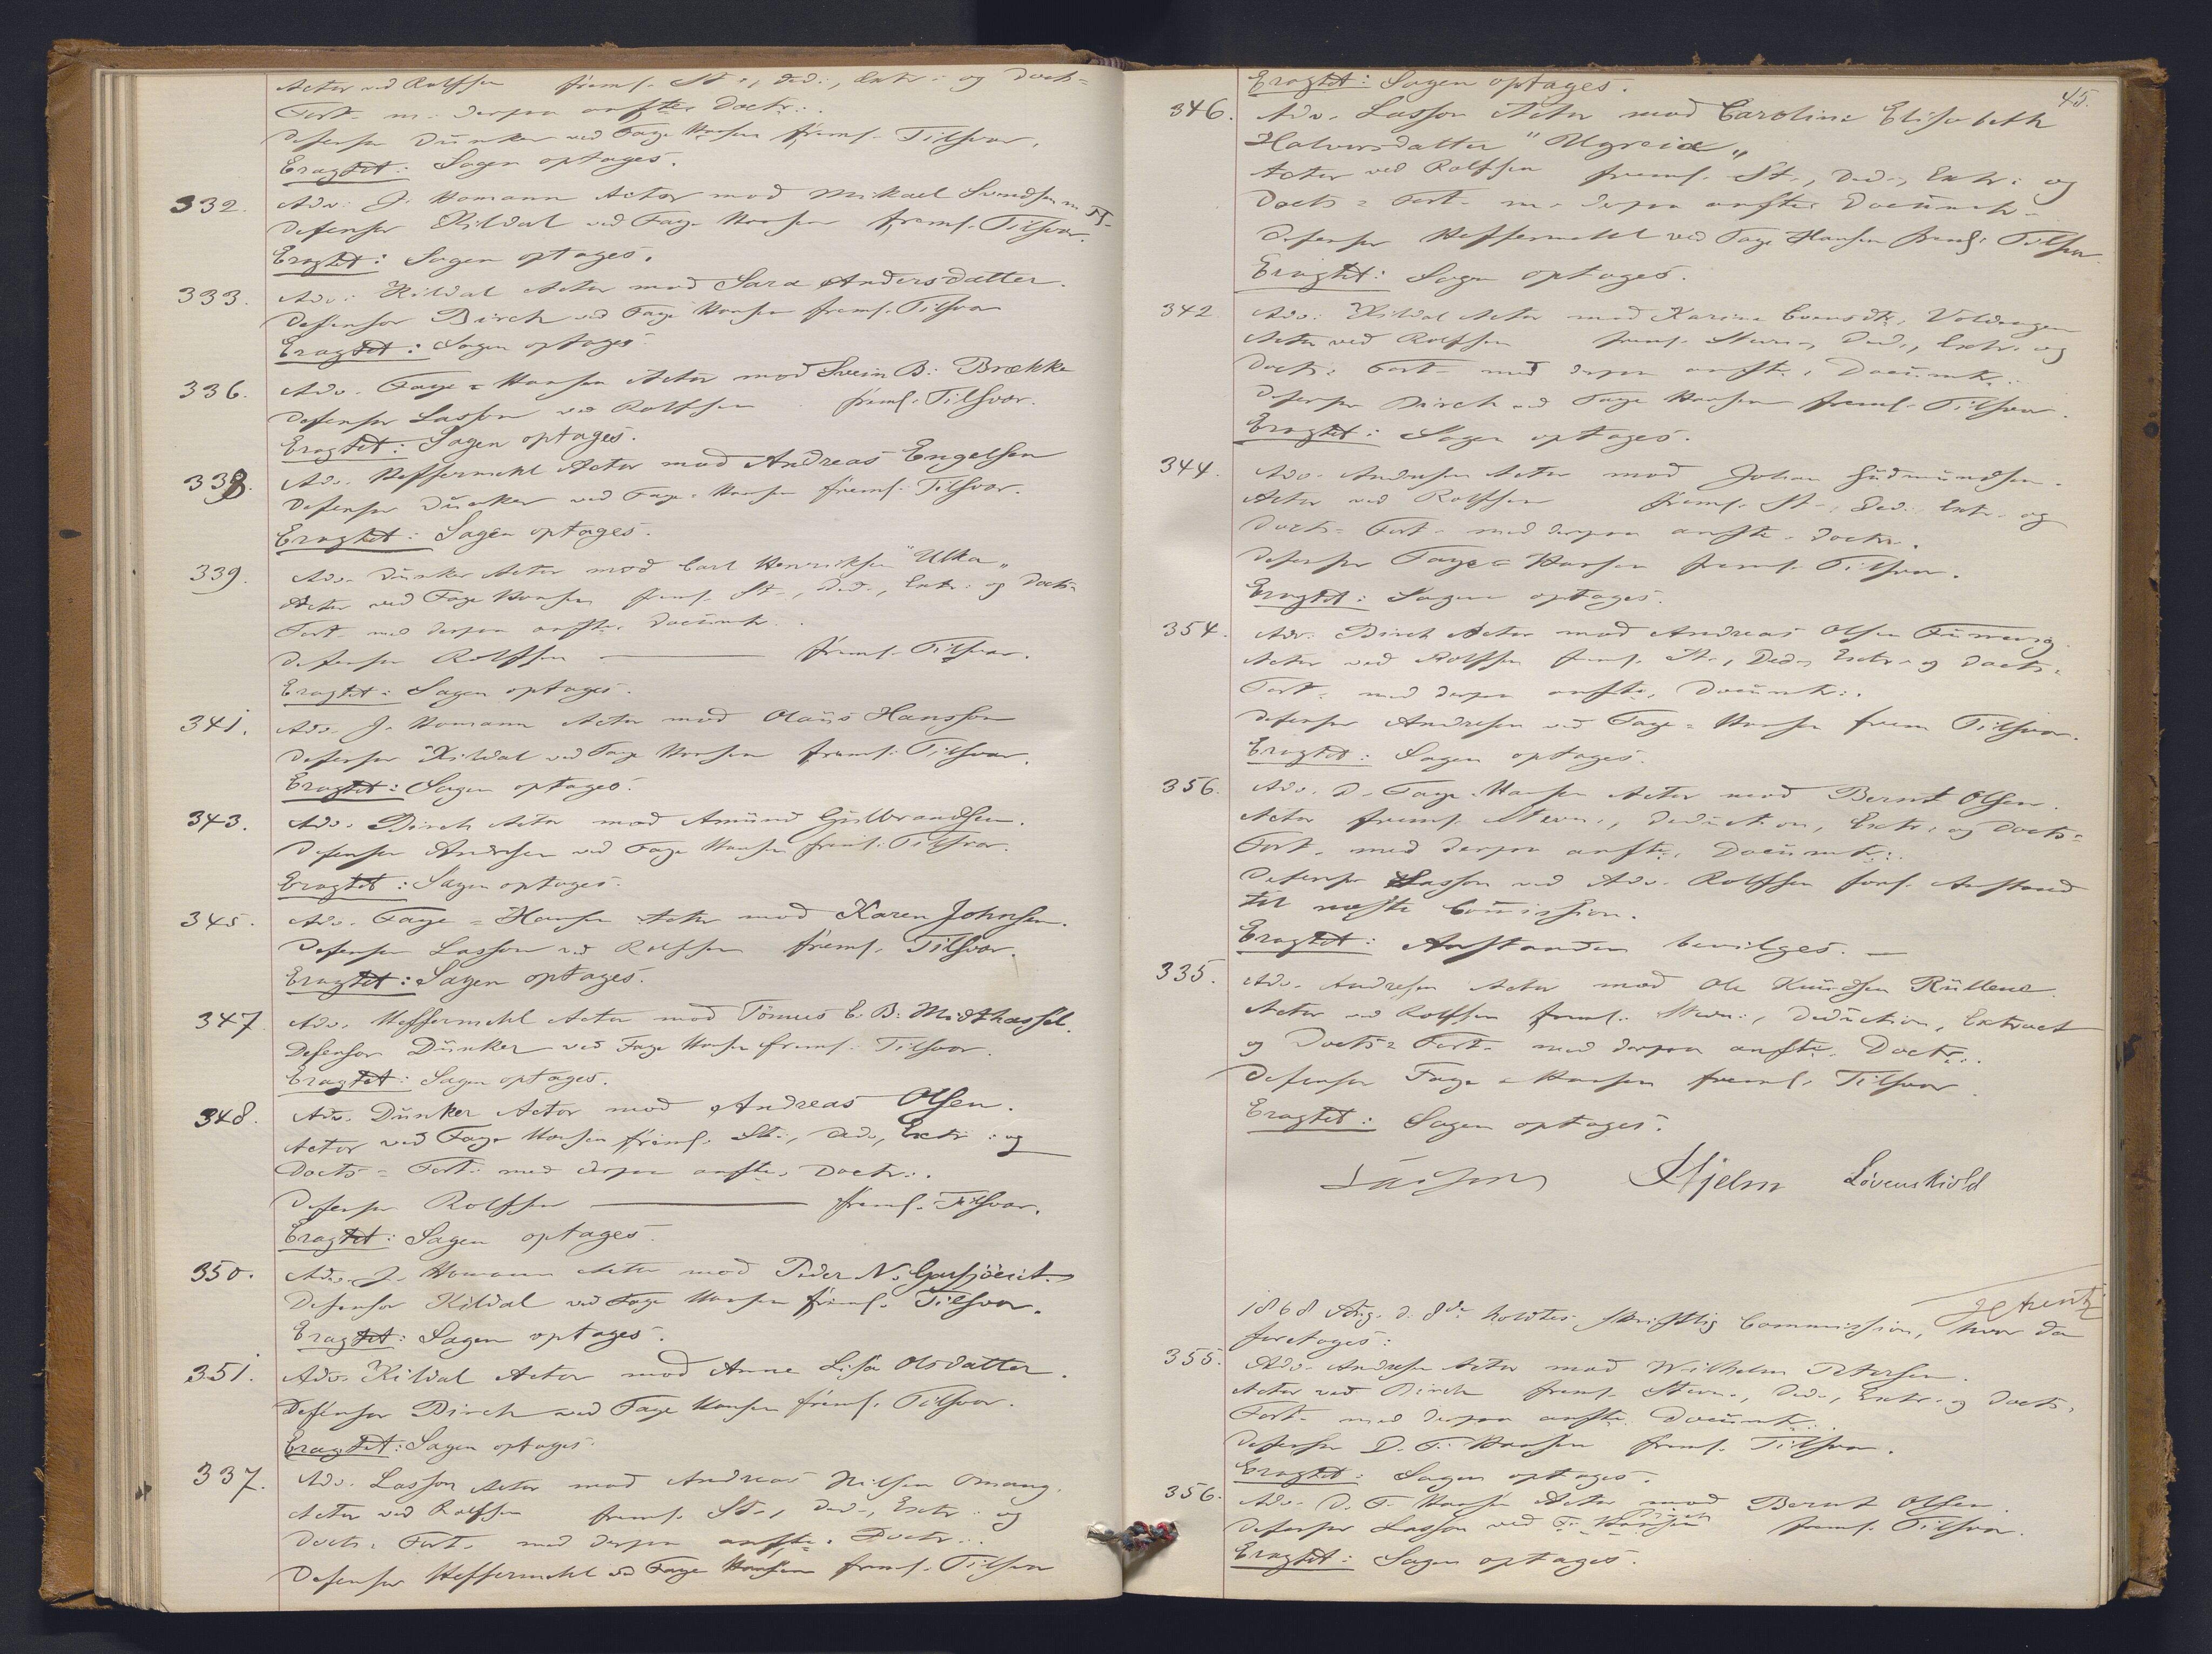 Actor ved Rolfsen freml. St:, Ded:, Extr: og Docts=
Fort. m. derpaa anførte Doctr:.
Defensor Dunker ved Faye Hansen freml. Tilsvar.
Eragtet: Sagen optages.
332. Adv. J. Homann Actor mod Mikael Svendsen m. Fl.
Defensor Kildal ved Faye Hansen freml. Tilsvar.
Eragtet: Sagen optages.
333. Adv: Kildal Actor mod Sara Andersdatter.
Defensor Birch ved Faye Hansen freml. Tilsvar
Eragtet: Sagen optages
336. Adv. Faye=Hansen Actor mod Svein B: Brække
Defensor Lasson ved Rolfsen freml. Tilsvar.
Eragtet: Sagen optages.
338. Adv. Heffermehl Actor mod Andreas Engelsen
Defensor Dunker ved Faye=Hansen freml. Tilsvar.
Eragtet: Sagen optages.
339. Adv. Dunker Actor mod Carl Henriksen "Ulka"
Actor ved Faye Hansen freml. St:, Ded:, Extr: og Docts=
Fort. med derpaa anførte Documtr.
Defensor Rolfsen — freml. Tilsvar.
Eragtet: Sagen optages.
341. Adv. J. Homann Actor mod Olaus Hansson
Defensor Kildal ved Faye Hansen freml. Tilsvar.
Eragtet: Sagen optages.
343. Adv. Birch Actor mod Amund Gulbrandsen.
Defensor Andresen ved Faye Hansen freml. Tilsvar.
Eragtet: Sagen optages.
345. Adv. Faye=Hansen Actor mod Karen Johnsen.
Defensor Lasson ved Rolfsen freml. Tilsvar.
Eragtet: Sagen optages.
347 Adv. Heffermehl Actor mod Tönnes E. B: Midthassel.
Defensor Dunker ved Faye Hansen freml. Tilsvar.
Eragtet: Sagen optages.
348. Adv. Dunker Actor mod Andreas Olsen.
Actor ved Faye Hansen freml. St:, Ded:, Extr: og
Docts= Fort: med derpaa anførte Doctr:.
Defensor Rolfsen — freml. Tilsvar.
Eragtet: Sagen optages.
350. Adv. J. Homann Actor mod Peder N.
Defensor Kildal ved Faye Hansen freml. Tilsvar.
Eragtet: Sagen optages.
351. Adv. Kildal Actor mod Anne Lisa Olsdatter.
Defensor Birch ved Faye Hansen freml. Tilsvar.
Eragtet: Sagen optages.
337. Adv. Lasson Actor mod Andreas Nilsen Omang.
Actor ved Rolfsen freml. St:, Ded:, Extr: og
Docts= Fort. med derpaa anførte Doctr:.
Defensor Heffermehl ved Faye Hansen freml. Tilsvar
45.
Eragtet: Sagen optages.
346. Adv. Lasson Actor mod Caroline Elisabeth
Halvorsdatter "Ugreia"
Actor ved Rolfsen freml. St:, Ded:, Extr: og
Docts= Fort. m. derpaa anførte Documtr.
Defensor Heffermehl ved Faye Hansen freml: Tilsvar.
Eragtet: Sagen optages.
342 Adv: Kildal Actor mod Karine Evensdtr,
Actor ved Rolfsen freml. Stevn:, Ded:, Extr. og
Docts= Fort. med derpaa anførte Documtr:
Defensor Birch ved Faye Hansen freml. Tilsvar.
Eragtet: Sagen optages.
344. Adv. Andresen Actor mod Johan Gudmundsen.
Actor ved Rolfsen freml. St:, Ded:, Extr. og
Docts= Fort. med derpaa anførte Doctr:.
Defensor Faye=Hansen freml. Tilsvar.
Eragtet: Sagen optages.
354. Adv: Birch Actor mod Andreas Olsen
Actor ved Rolfsen freml. St:, Ded:, Extr: og Docts=
Fort. med derpaa anførte Documtr:.
Defensor Andresen ved Faye=Hansen freml. Tilsvar.
Eragtet: Sagen optages.
356. Adv. D. Faye-Hansen Actor mod Bernt Olsen.
Actor freml. Stevn:, Deduction, Extr: og Docts=
Fort. med derpaa anførte Documtr:.
Defensor Lasson ved Adv. Rolfsen forl. Anstand
til næste Commission.
Eragtet: Anstanden bevilges. —
335. Adv. Andresen Actor mod Ole Knudsen Rullene.
Actor ved Rolfsen freml. Stevn:, Deduction, Extract
og Docts= Fort. med derpaa anførte Doctr:.
Defensor Faye=Hansen freml. Tilsvar
Eragtet: Sagen optages.
Hjelm Løvenskiold
1868 Aug. d. 8de holdtes skriftlig Commission, hvor da
foretoges:
355. Adv. Andresen Actor mod Wilhelm Petersen.
Actor ved Birch freml. Stevn:, Ded:, Extr. og Docts=
Fort. med derpaa anførte Documtr:.
Defensor D. F. Hansen freml. Tilsvar.
Eragtet: Sagen optages.
356. Adv. D. F. Hansen Actor mod Bernt Olsen.
Defensor Lasson ved F. Hansen Birch freml. Tilsvar.
Eragtet: Sagen optages.